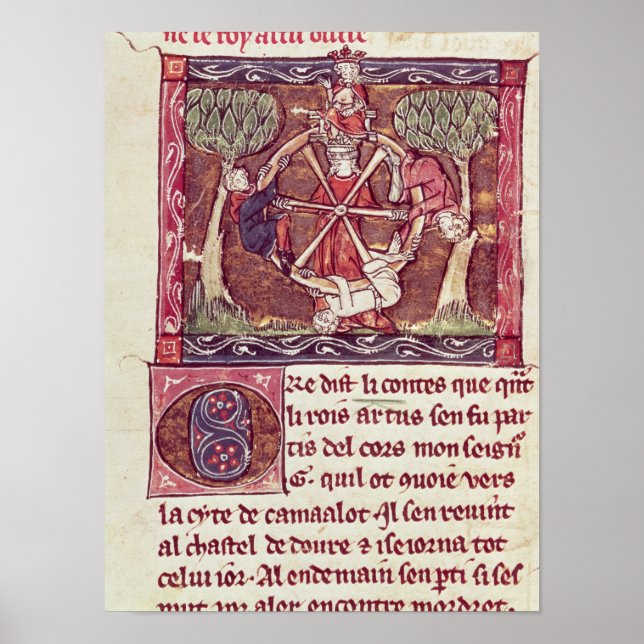 ne le roy artu oultre
Ore dist li contes que qñt
li rois artus sen fu par
tis del cors mon seigñ
G. quil ot enuoie vers
la cyte de camaalot. Il sen reuint
al chastel de doure & iseiorna tot
celui ior. Al endemain sen pti si ses
mut por aler encontre mordret.